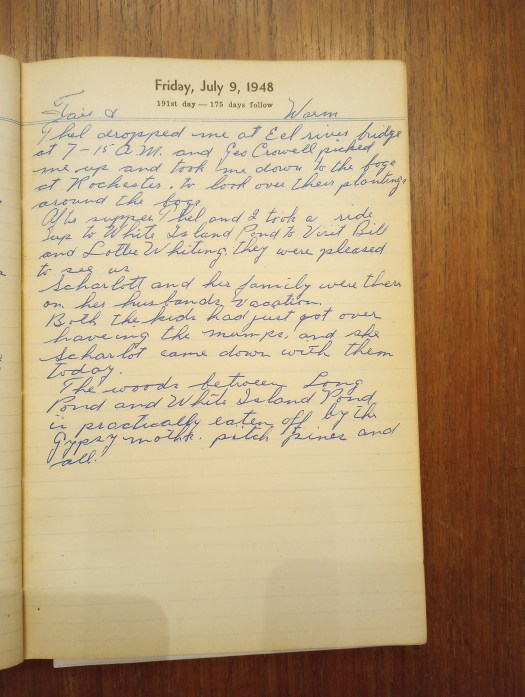 Friday, July 9, 1948
191st day — 175 days follow
Fair & Warm
Thel dropped me at Eel river bridge
at 7-15 A.M. and Geo Crowell picked
me up and took me down to the bogs
at Rochester. to look over their plantings
around the bogs.
After supper Thel and I took a ride
up to White Island Pond to Visit Bill
and Lottie Whiting, they were pleased
to see us
Scharlott and her family were there
on her husbands vacation.
Both the kids had just got over
haveing the mumps, and she
Scharlot came down with them
today.
The woods between Long
Pond and White Island Pond
is practically eaten off by the
Gypsy moths. pitch pines and
all.